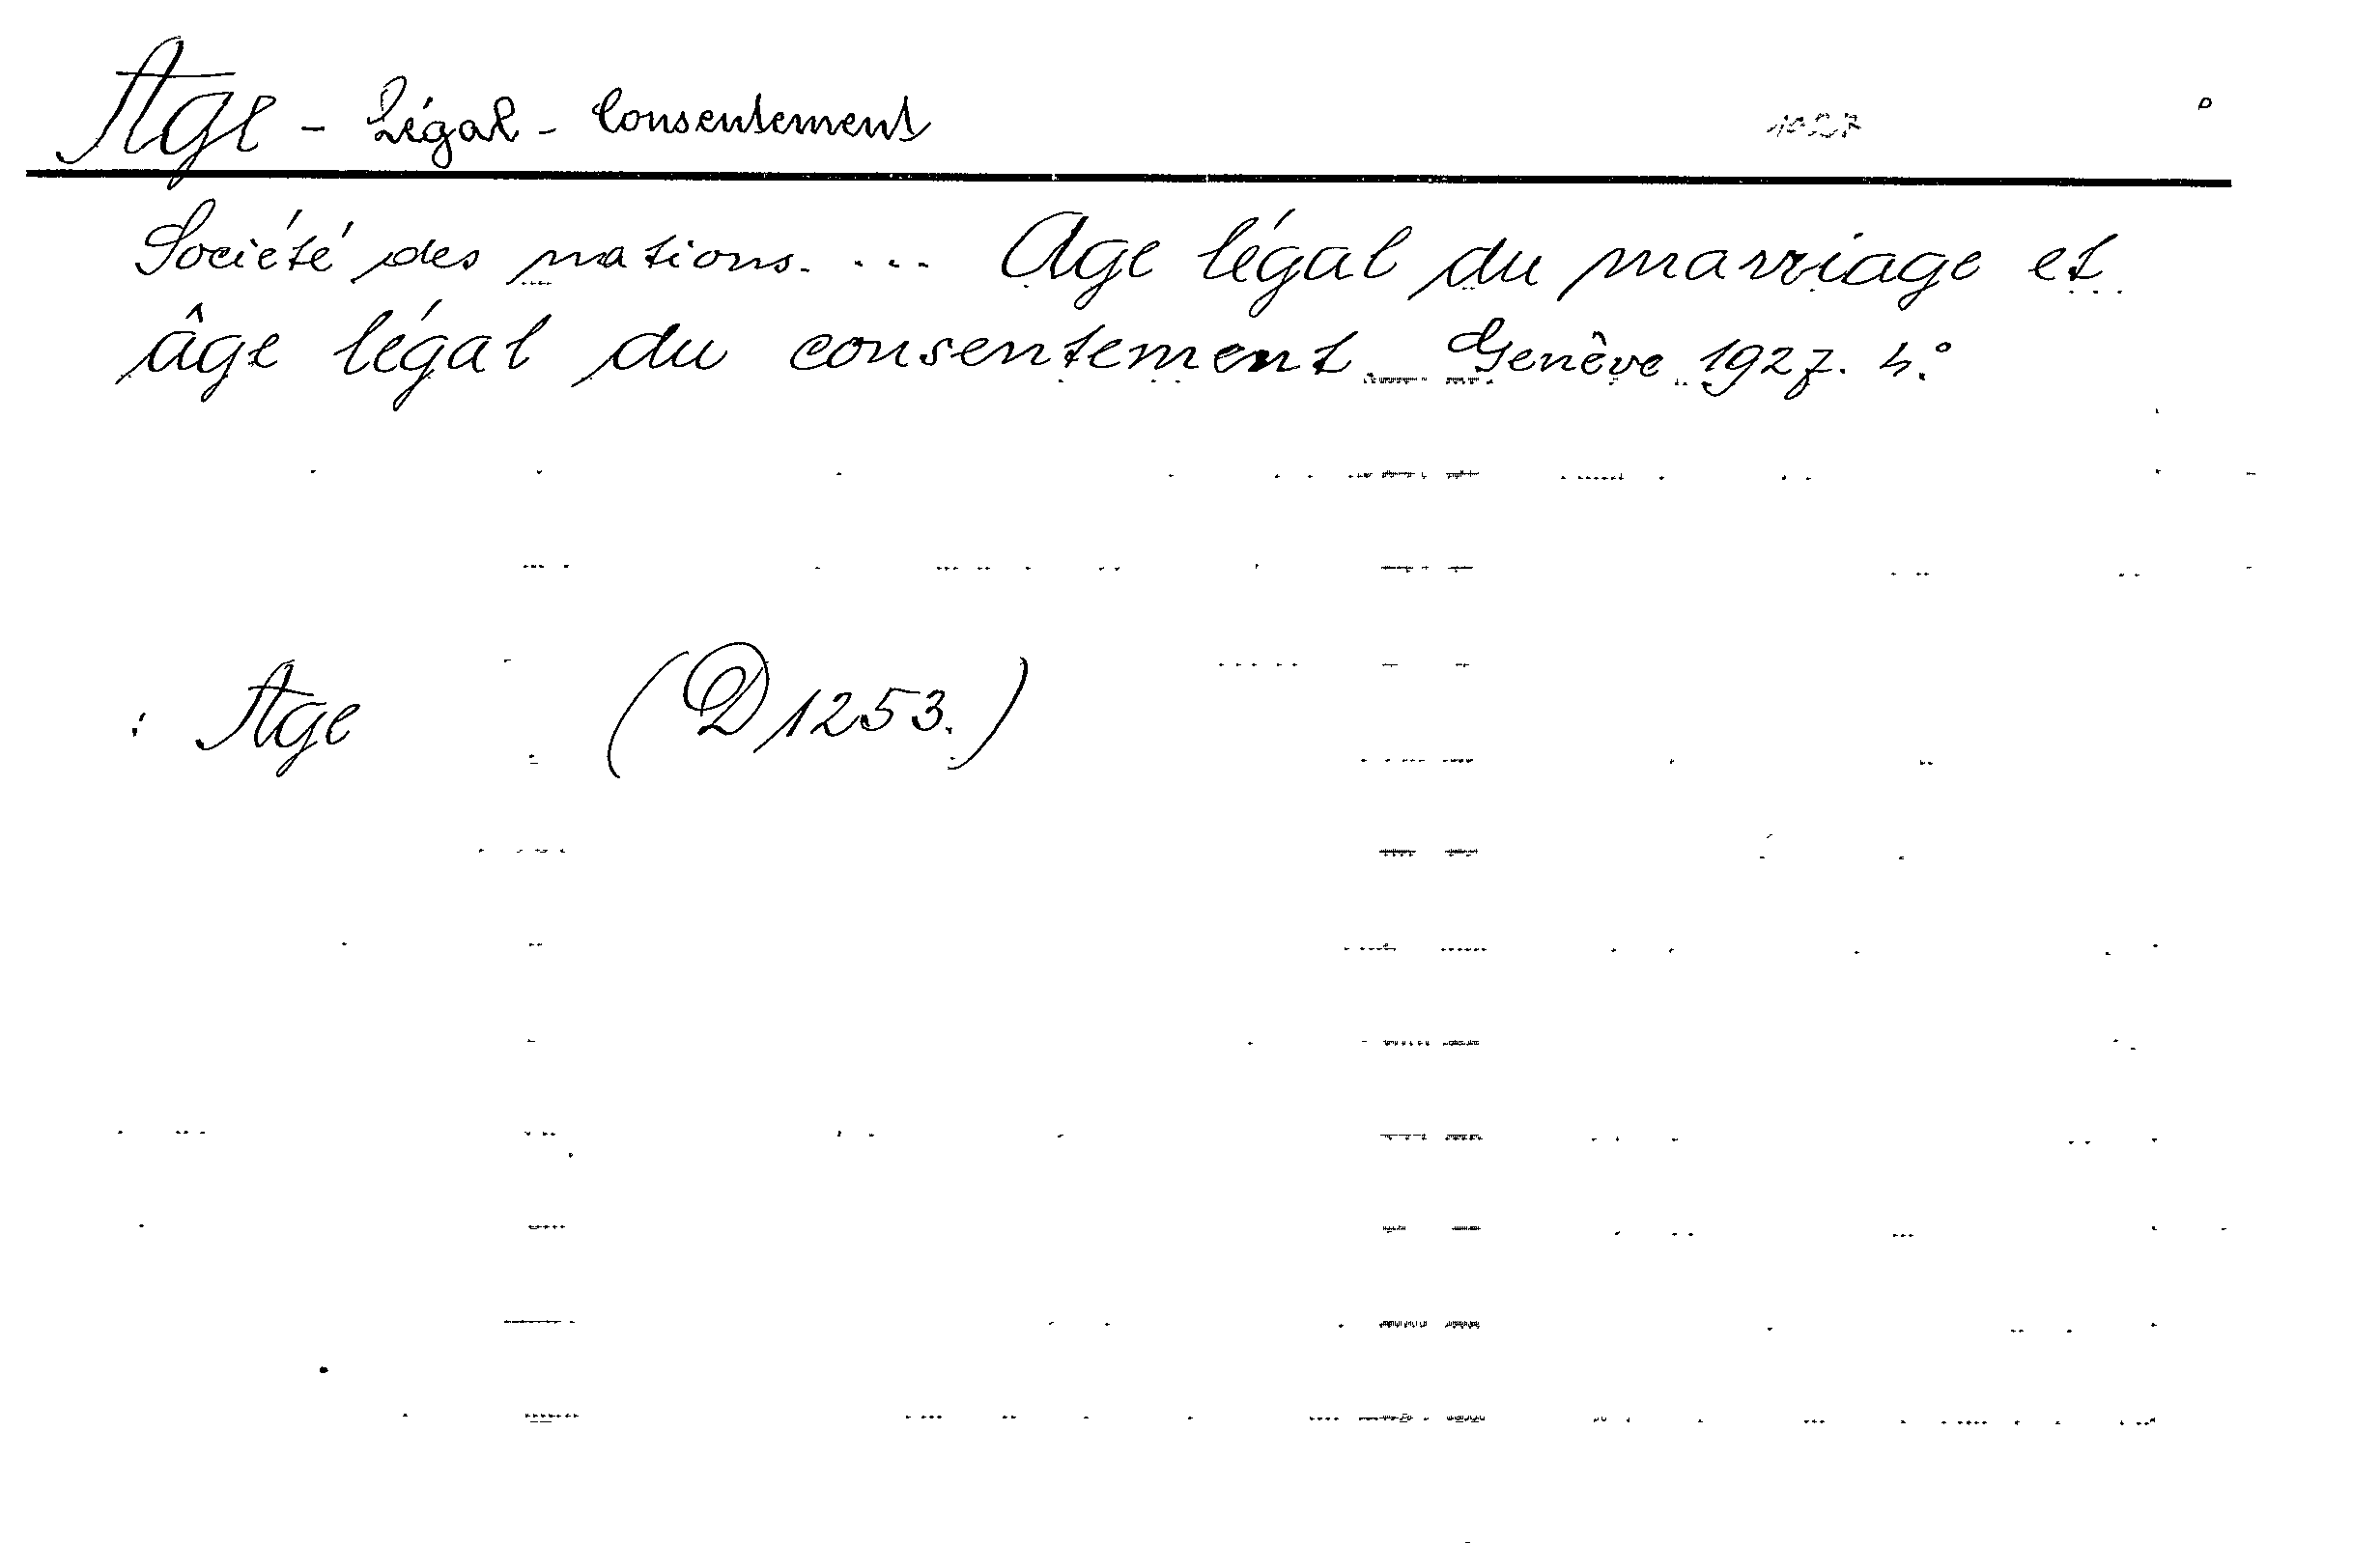 Age - Légal - Consentement 1927
Société des nations. ... Age légal du marriage et
âge légal du consentement. Genève 1927. 4°.
: Age (D 1253.)